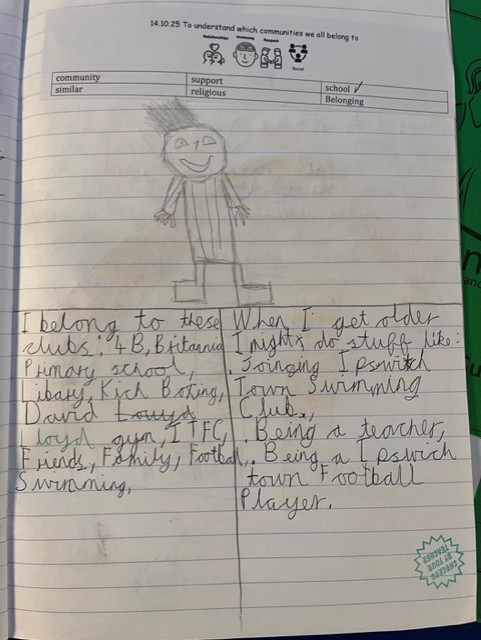 14.10.25 To understand which communities we all belong to
Relationships
Respect
Social
community support school ✓
similar religious Belonging
I belong to these
clubs: 4B, Britannia
Primary school,
Libary, Kick Boxing,
David Louyd
Lloyd gym, ITFC,
Friends, Family, Football,
Swimming,
When I get older
I might do stuff like:
. Joinging Ipswitch
Town Swimming
Club,
. Being a teacher,
. Being a Ipswich
town Football
Player.
CHECKED
BY YOUR
TEACHER